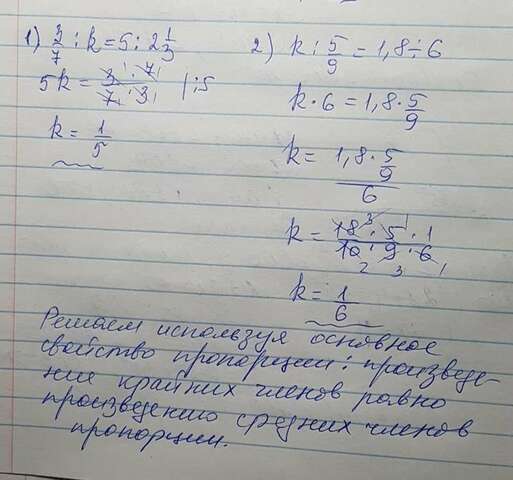 1) 3/7 : k = 5 : 2 1/3
5k = 3 · 7 / 7 · 3 | : 5
k = 1/5
2) k : 5/9 = 1,8 ÷ 6
k · 6 = 1,8 · 5/9
k = 1,8 · 5/9 / 6
k = 18 · 5 · 1 / 10 · 9 · 6
k = 1/6
Решаем используя основное
свойство пропорции: произведе-
ние крайних членов равно
произведению средних членов
пропорции.